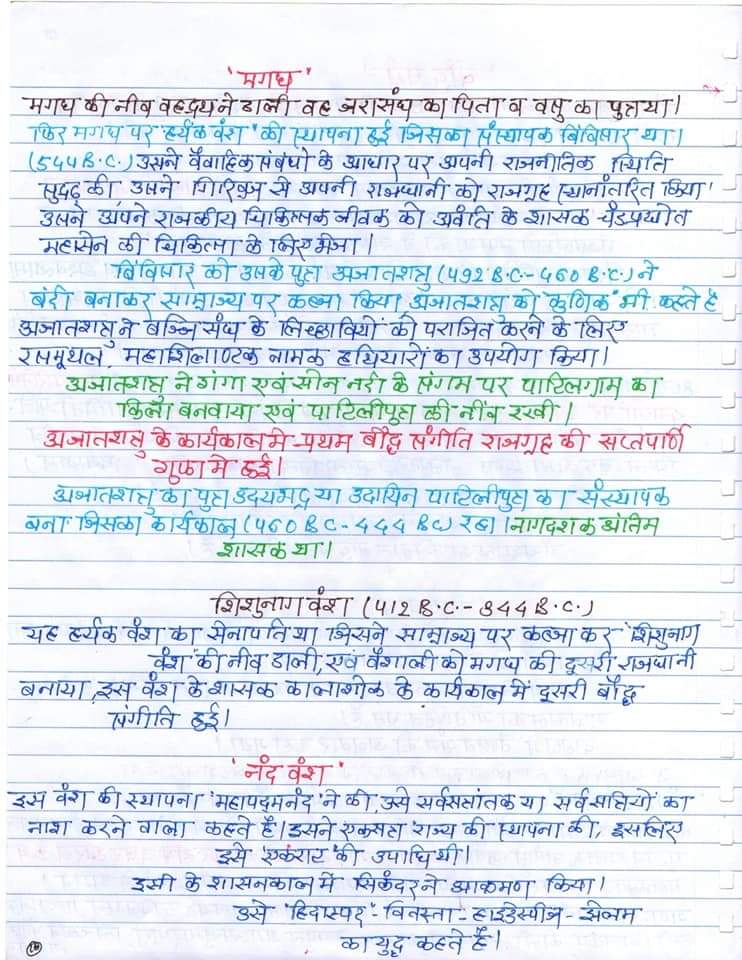 'मगध'
मगध की नीव वहद्रथ ने डाली वह जरासंध का पिता व वसु का पुत्र था।
फिर मगध पर 'हर्यक वंश' की स्थापना हुई जिसका संस्थापक बिंबिसार था।
(544 B.C.) उसने वैवाहिक संबंधो के आधार पर अपनी राजनीतिक स्थिति
सुदृढ़ की, उसने गिरिवृज से अपनी राजधानी को राजगृह स्थानांतरित किया
उसने अपने राजकीय चिकित्सक जीवक को अवंति के शासक चंडप्रघोत
महासेन की चिकित्सा के लिए भेजा।
बिंबिसार को उसके पुत्र अजातशत्रु (492 B.C.- 460 B.C.) ने
बंदी बनाकर साम्राज्य पर कब्जा किया अजातशत्रु को 'कुणिक' भी कहते है
अजातशत्रु ने बज्जि संघ के लिच्छावियों को पराजित करने के लिए
रसमूथल, महाशिलाण्टक नामक हथियारों का उपयोग किया।
अजातशत्रु ने गंगा एवं सोन नदी के संगम पर पाटिलग्राम का
किला बनवाया एवं पाटिलीपुत्र की नींव रखी।
अजातशत्रु के कार्यकाल मे प्रथम बौद्ध संगीति राजगृह की सप्तपर्णि
गुफा मे हुई।
अजातशत्रु का पुत्र उदयभद्र या उदायिन पाटिलीपुत्र का संस्थापक
बना जिसका कार्यकाल (460 B.C - 444 B.C) रहा। नागदशक अंतिम
शासक था।
शिशुनाग वंश (412 B.C.- 344 B.C.)
यह हर्यक वंश का सेनापति था जिसने साम्राज्य पर कब्जा कर 'शिशुनाग
वंश' की नीव डाली, एवं वैशाली को मगध की दुसरी राजधानी
बनाया, इस वंश के शासक कालाशोक के कार्यकाल में दुसरी बौद्ध
संगीति हुई।
'नंद वंश'
इस वंश की स्थापना 'महापदमनंद' ने की, उसे सर्वसत्तांतक या सर्व सत्तियों का
नाश करने वाला कहते है। इसने एकसत्ता राज्य की स्थापना की, इसलिए
इसे 'एकराट' की उपाधि थी।
इसी के शासनकाल में सिकंदर ने आक्रमण किया।
उसे 'हिदास्पर'- वितस्ता - हाइडेस्पीज - झेलम
का युद्ध कहते है।